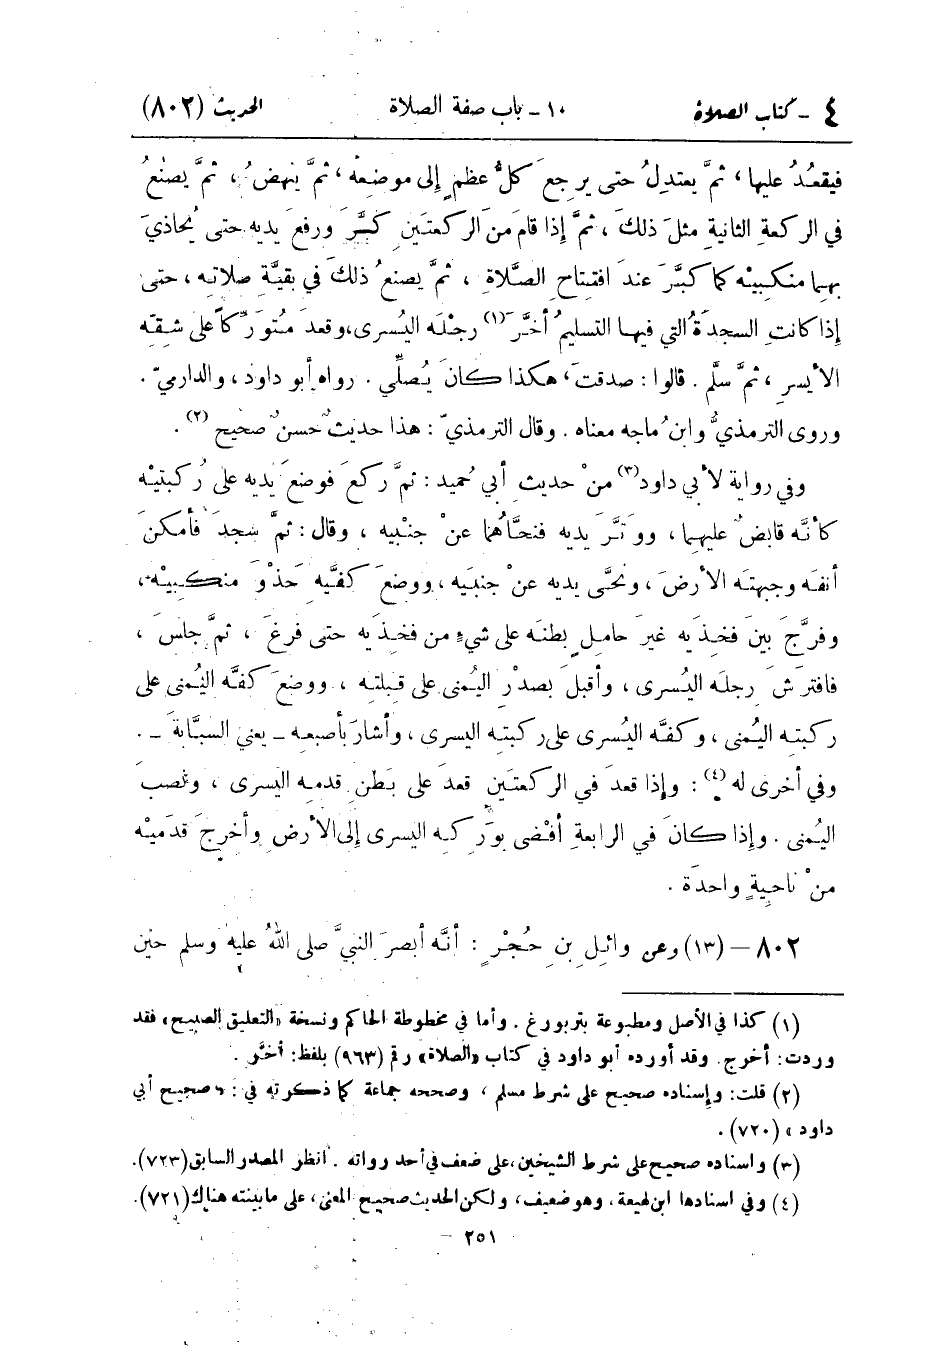 ٤ - كتاب الصلاة ١٠ - باب صفة الصلاة الحديث (٨٠٢)
فيقعُدُ عليها، ثمَّ يعتدلُ حتى يرجعَ كلُّ عظمٍ إلى موضعِه، ثمَّ ينهضُ، ثمَّ يصنعُ
في الركعةِ الثانيةِ مثلَ ذلكَ، ثمَّ إذا قامَ منَ الركعتينِ كبَّرَ ورفعَ يديهِ حتى يُحاذيَ
بهما منكبيْه كما كبَّرَ عندَ افتِتاحِ الصَّلاةِ، ثمَّ يصنعُ ذلكَ في بقيَّةِ صلاتِه، حتى
إذا كانتِ السجدَةُ التي فيها التسليمُ أخَّرَ(١) رجْلَه اليُسرى، وقعدَ مُتورِّكاً على شقِّه
الأيسرِ، ثمَّ سلَّم. قالوا: صدقتَ، هكذا كانَ يُصلِّي. رواه أبو داود، والدارميّ.
وروى الترمذيُّ وابنُ ماجه معناه. وقال الترمذيّ: هذا حديثٌ حسنٌ صحيح(٢).
وفي رواية لأبي داود(٣) منْ حديثِ أبي حُميد: ثمَّ ركعَ فوضعَ يديه على رُكبتيْه
كأنَّه قابضٌ عليهما، ووَتَّرَ يديه فنحَّاهُما عنْ جنْبيه، وقال: ثمَّ سجدَ فأمكنَ
أنفَه وجبهتَه الأرضَ، ونحَّى يديه عنْ جنبَيه، ووضعَ كفَّيهِ حَذْوَ منكبيْه،
وفرَّجَ بينَ فخذَيه غيرَ حاملٍ بطنَه على شيءٍ من فخذيه حتى فرغَ، ثمَّ جلسَ،
فافترشَ رجلَه اليُسرى، وأقبلَ بصدْرِ اليُمنى على قِبلتِه، ووضعَ كفَّه اليُمنى على
ركبتِه اليُمنى، وكفَّه اليُسرى على ركبتِه اليسرى، وأشارَ بأصبعِه - يعني السبَّابةَ - .
وفي أخرى له(٤): وإذا قعدَ في الركعتَينِ قعدَ على بَطنِ قدمِه اليسرى، ونصبَ
اليُمنى. وإذا كانَ في الرابعةِ أفْضى بوَرِكِه اليسرى إلى الأرضِ وأخرجَ قدَميْه
منْ ناحيةٍ واحدَة.
٨٠٢ - (١٣) وعن وائلِ بنِ حُجْرٍ: أنَّه أبصرَ النبيَّ صلى اللهُ عليه وسلم حينَ
(١) كذا في الأصل ومطبوعة بتربورغ. وأما في مخطوطة الحاكم ونسخة «التعليق الصبيح» فقد
وردت: أخرج. وقد أورده أبو داود في كتاب «الصلاة» رقم (٩٦٣) بلفظ: أخَّر.
(٢) قلت: وإسناده صحيح على شرط مسلم، وصححه جماعة كما ذكرته في: «صحيح أبي
داود» (٧٢٠).
(٣) واسناده صحيح على شرط الشيخين، على ضعف في أحد رواته. انظر المصدر السابق (٧٢٣).
(٤) وفي اسنادها ابن لهيعة، وهو ضعيف، ولكن الحديث صحيح المعنى، على ما بينته هناك (٧٢١).
٢٥١ -